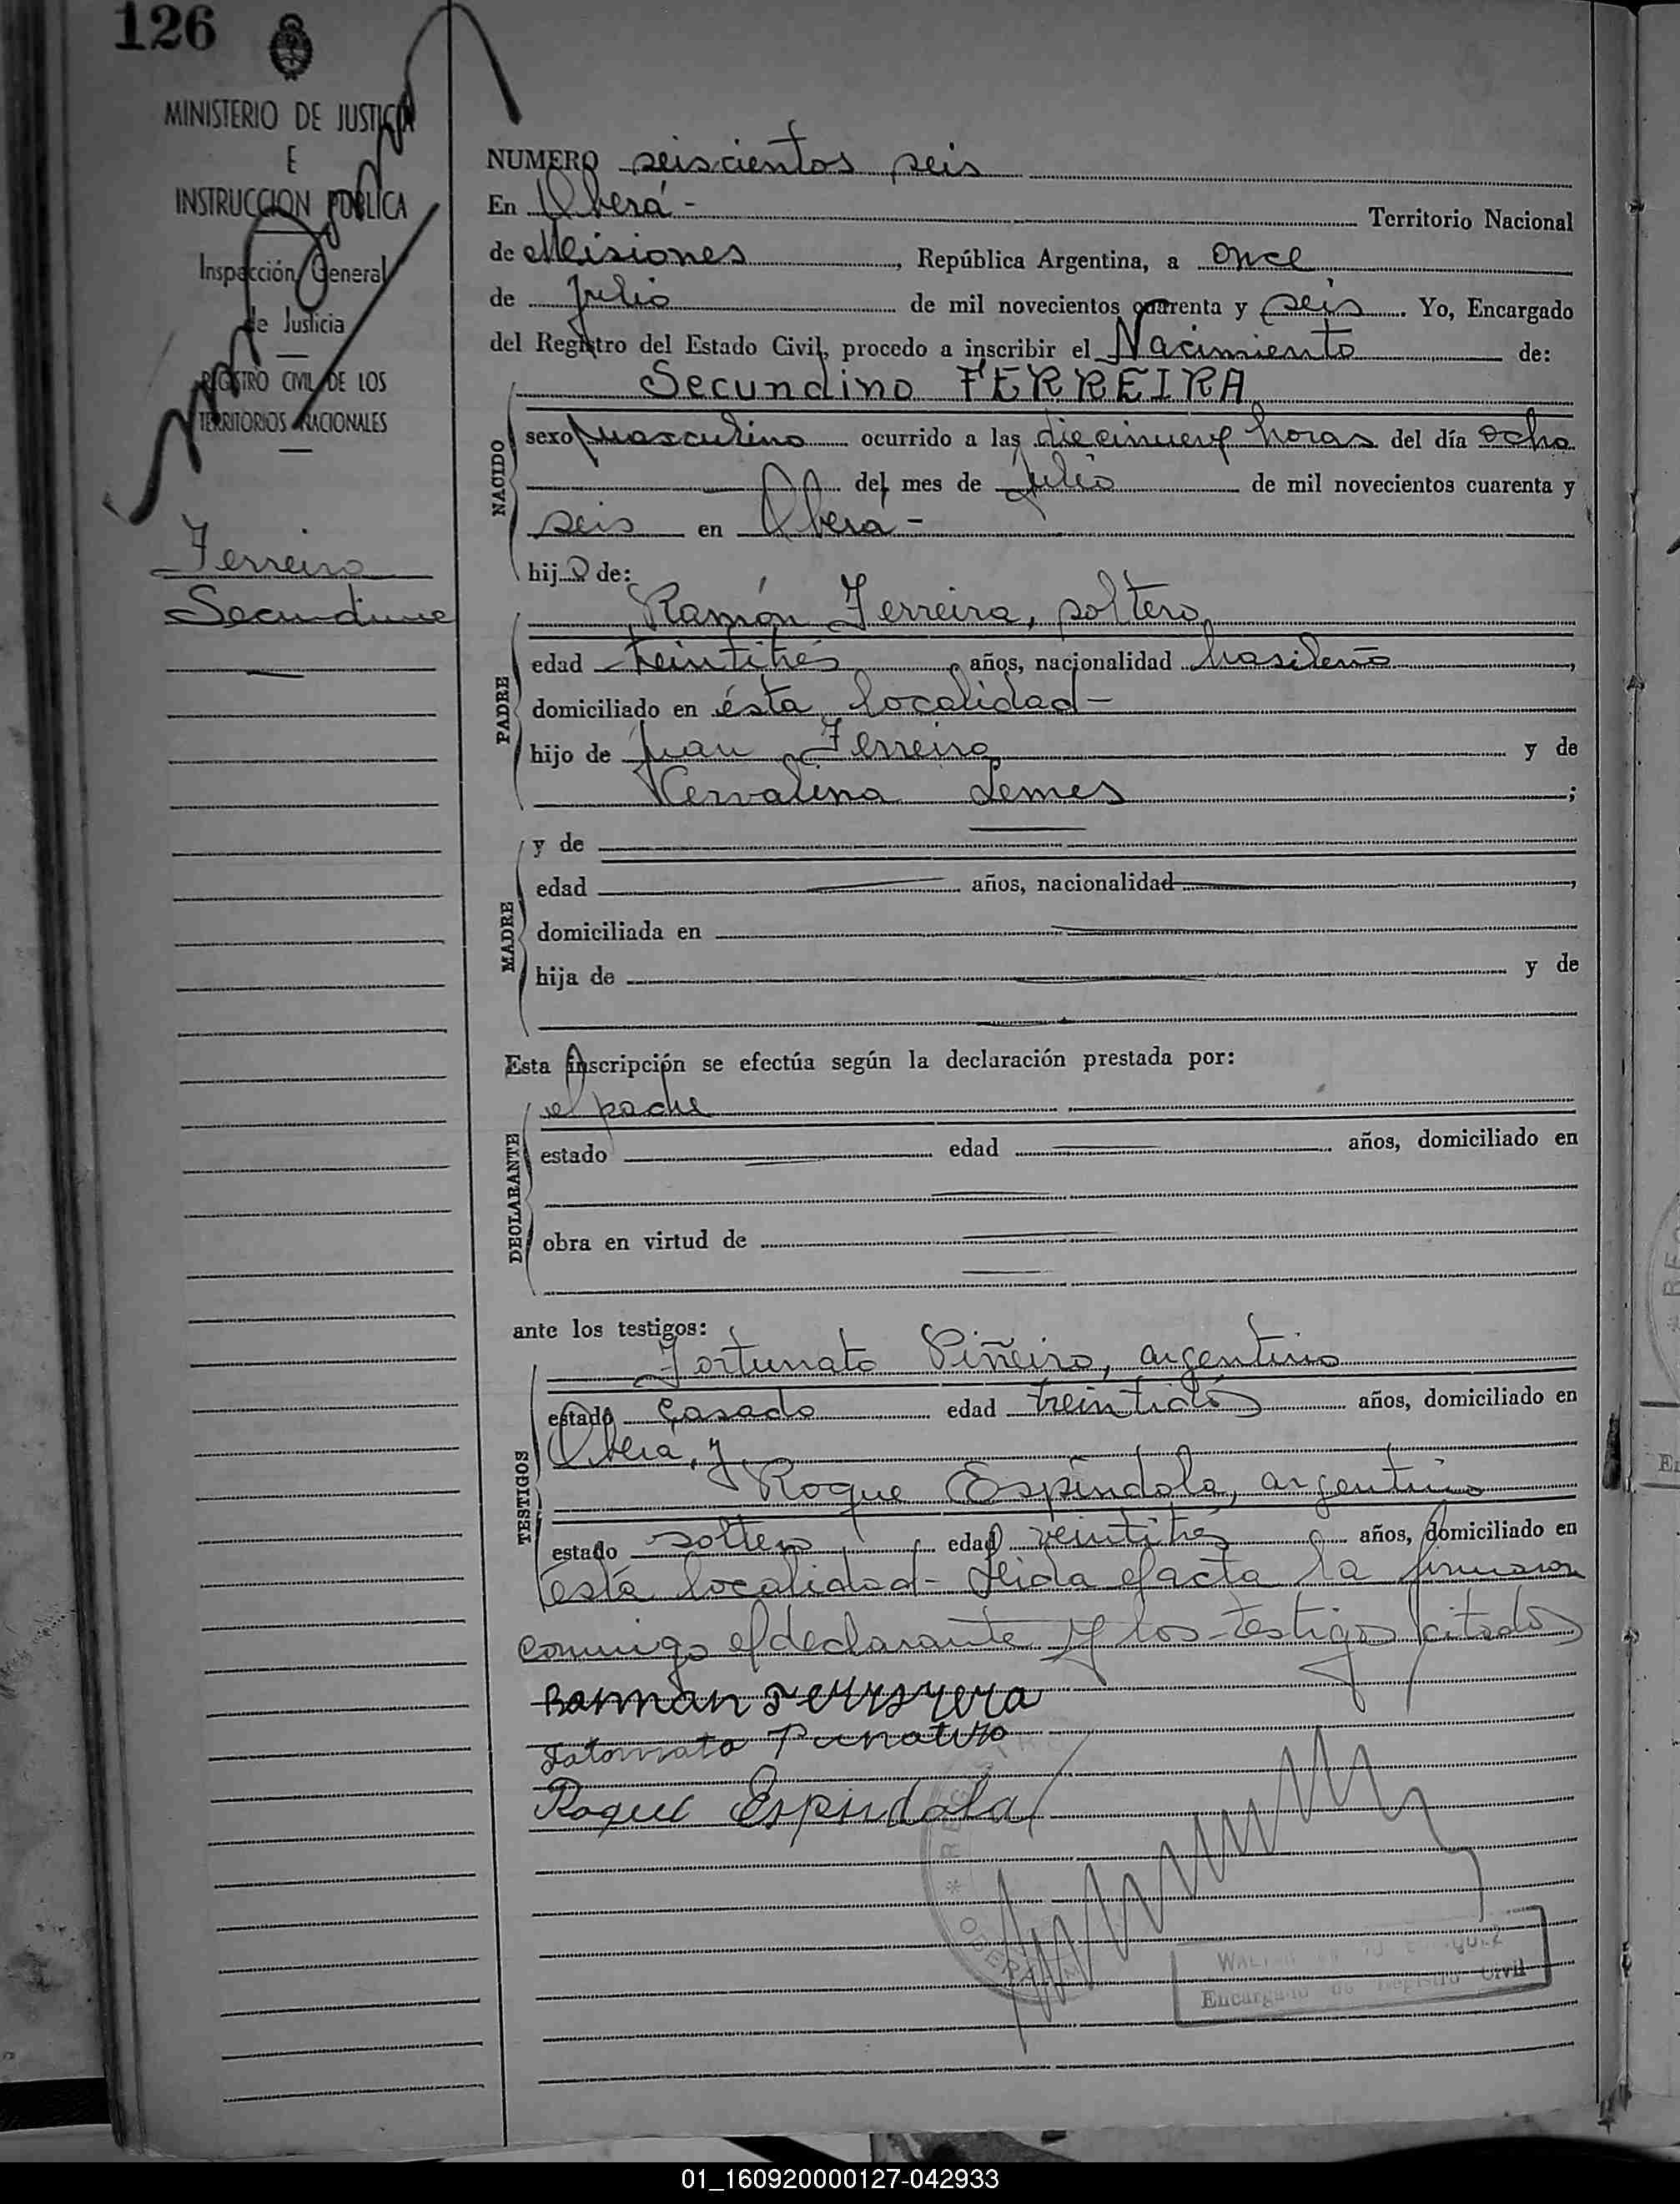 126
MINISTERIO DE JUSTICIA
E
INSTRUCCION PUBLICA
Inspección General
de Justicia
REGISTRO CIVIL DE LOS
TERRITORIOS NACIONALES
Ferreira
Secundino
NUMERO seiscientos seis
En Oberá- Territorio Nacional
de Misiones, República Argentina, a once
de julio de mil novecientos cuarenta y seis. Yo, Encargado
del Registro del Estado Civil, procedo a inscribir el Nacimiento de:
Secundino FERREIRA
NACIDO
sexo masculino ocurrido a las diecinueve horas del día ocho
del mes de julio de mil novecientos cuarenta y
seis en Oberá-
hijo de:
Ramón Ferreira, soltero,
PADRE
edad treintitrés años, nacionalidad brasileño,
domiciliado en ésta localidad-
hijo de Juan Ferreira y de
Lemes;
MADRE
y de
edad años, nacionalidad,
domiciliada en
hija de y de
Esta inscripción se efectúa según la declaración prestada por:
DECLARANTE
el padre
estado edad años, domiciliado en
obra en virtud de
ante los testigos:
TESTIGOS
Fortunato Piñeiro, argentino
estado casado edad treintidós años, domiciliado en
Oberá, y
Roque Espíndola, argentino
estado soltero edad veintitrés años, domiciliado en
ésta localidad- Leida el acta la firmaron
conmigo el declarante y los testigos citados
Ramman
Roque Espindola
REG
OBERA
Encargado de Registro Civil
01_160920000127-042933